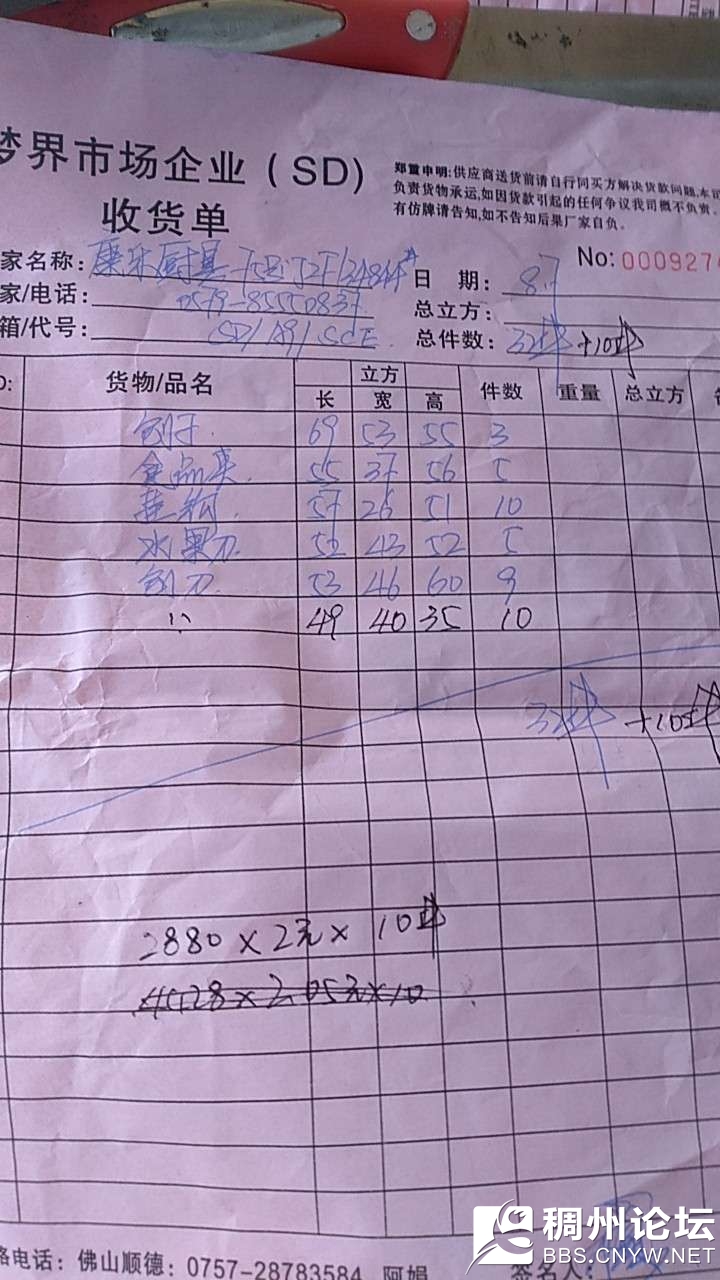 梦界市场企业(SD)
收货单
郑重申明:供应商送货前请自行同买方解决货款问题.本司
负责货物承运,如因货款引起的任何争议我司概不负责.
有仿牌请告知,如不告知后果厂家自负.
No: 0009274
家名称: 康乐厨具 日 期: 8.7
家/电话: 0579-85550837 总立方:
箱/代号: SD/A9/SCE 总件数: 32件+10件
货物/品名 立方 件数 重量 总立方
长 宽 高
刨子 69 53 55 3
食品夹 55 37 56 5
挂钩 57 26 51 10
水果刀 52 43 52 5
刨刀 53 46 60 9
49 40 35 10
32件 +10件
2880×2元×10件
4428×2.05元×10
络电话: 佛山顺德: 0757-28783584 阿娟 签名人
稠州论坛
BBS.CNYW.NET